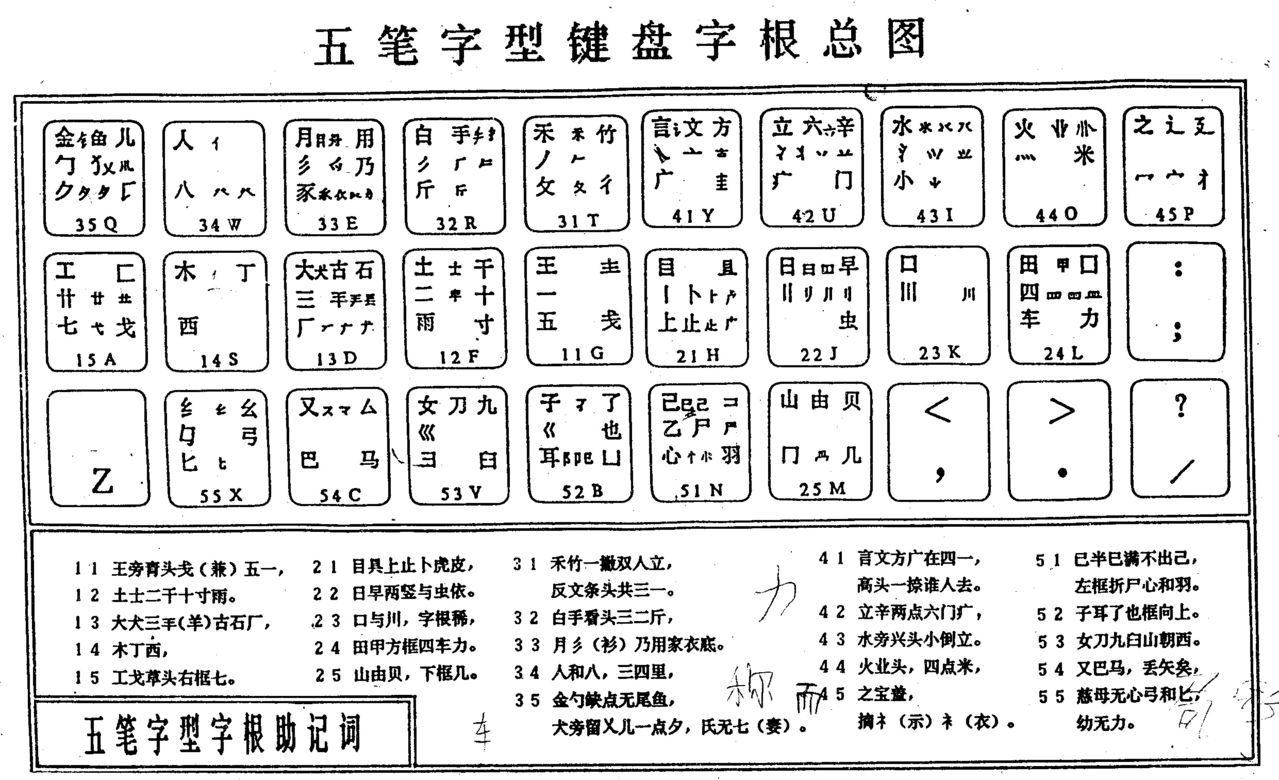 五笔字型键盘字根总图
金钅鱼儿
勹犭乂
夕 厂
35Q
人亻
八
34W
月 用
彡 乃
豕
33E
白手扌
斤
32R
禾 竹
丿
攵 夂 彳
31T
言讠文方
广 圭
41Y
立六辛
冫 丷
疒 门
42U
水
氵
小
43I
火 业
灬 米
44O
之辶廴
冖 宀
45P
工 匚
廾 廿
七 弋 戈
15A
木 丁
西
14S
大犬古石
三
厂
13D
土士干
二 十
雨 寸
12F
王
一
五 戋
11G
目 且
丨 卜
上止
21H
日曰 早
虫
22J
口
川
23K
田甲囗
四 皿
车 力
24L
:
;
Z
纟 幺
弓
匕
55X
又 マ 厶
巴 马
54C
女刀九
巛
彐 臼
53V
子 了
巜 也
耳阝卩凵
52B
已巳己コ
乙尸
心忄 羽
51N
山由贝
冂 几
25M
<
,
>
.
?
/
11 王旁青头戋(兼)五一,
12 土士二干十寸雨。
13 大犬三(羊)古石厂,
14 木丁西,
15 工戈草头右框七。
21 目具上止卜虎皮,
22 日早两竖与虫依。
23 口与川,字根稀,
24 田甲方框四车力。
25 山由贝,下框几。
31 禾竹一撇双人立,
反文条头共三一。
32 白手看头三二斤,
33 月彡(衫)乃用家衣底。
34 人和八,三四里,
35 金勺缺点无尾鱼,
犬旁留乂儿一点夕,氏无七(妻)。
41 言文方广在四一,
高头一捺谁人去。
42 立辛两点六门疒,
43 水旁兴头小倒立。
44 火业头,四点米,
45 之宝盖,
摘礻(示)衤(衣)。
51 已半巳满不出己,
左框折尸心和羽。
52 子耳了也框向上。
53 女刀九臼山朝西。
54 又巴马,丢矢矣,
55 慈母无心弓和匕,
幼无力。
力
称
而
车
五笔字型字根助记词